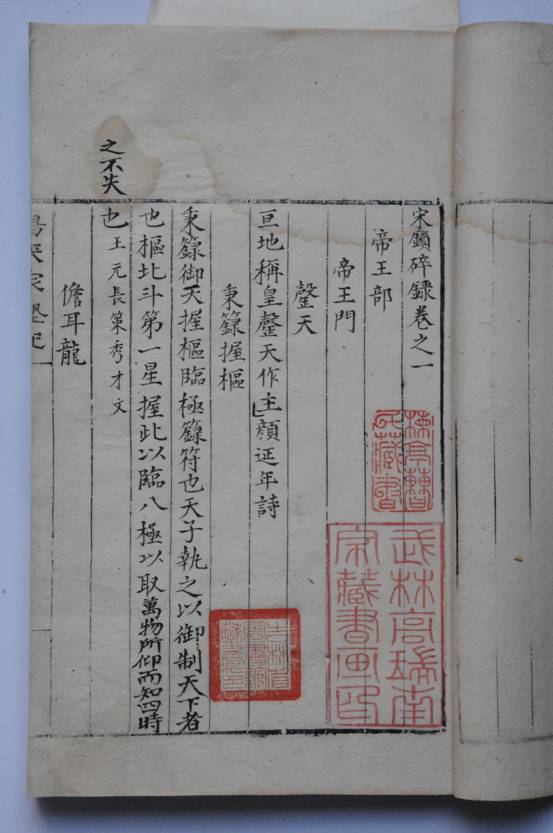 宋鎖碎錄卷之一
帝王部
帝王門
罄天
亘地稱皇罄天作主顏延年詩
秉籙握樞
秉籙御天握樞臨極籙符也天子執之以御制天下者
也樞北斗第一星握此以臨八極以取萬物所仰而知四時
之不失
也王元長策秀才文
儋耳龍
武林高瑞南
家藏書画印